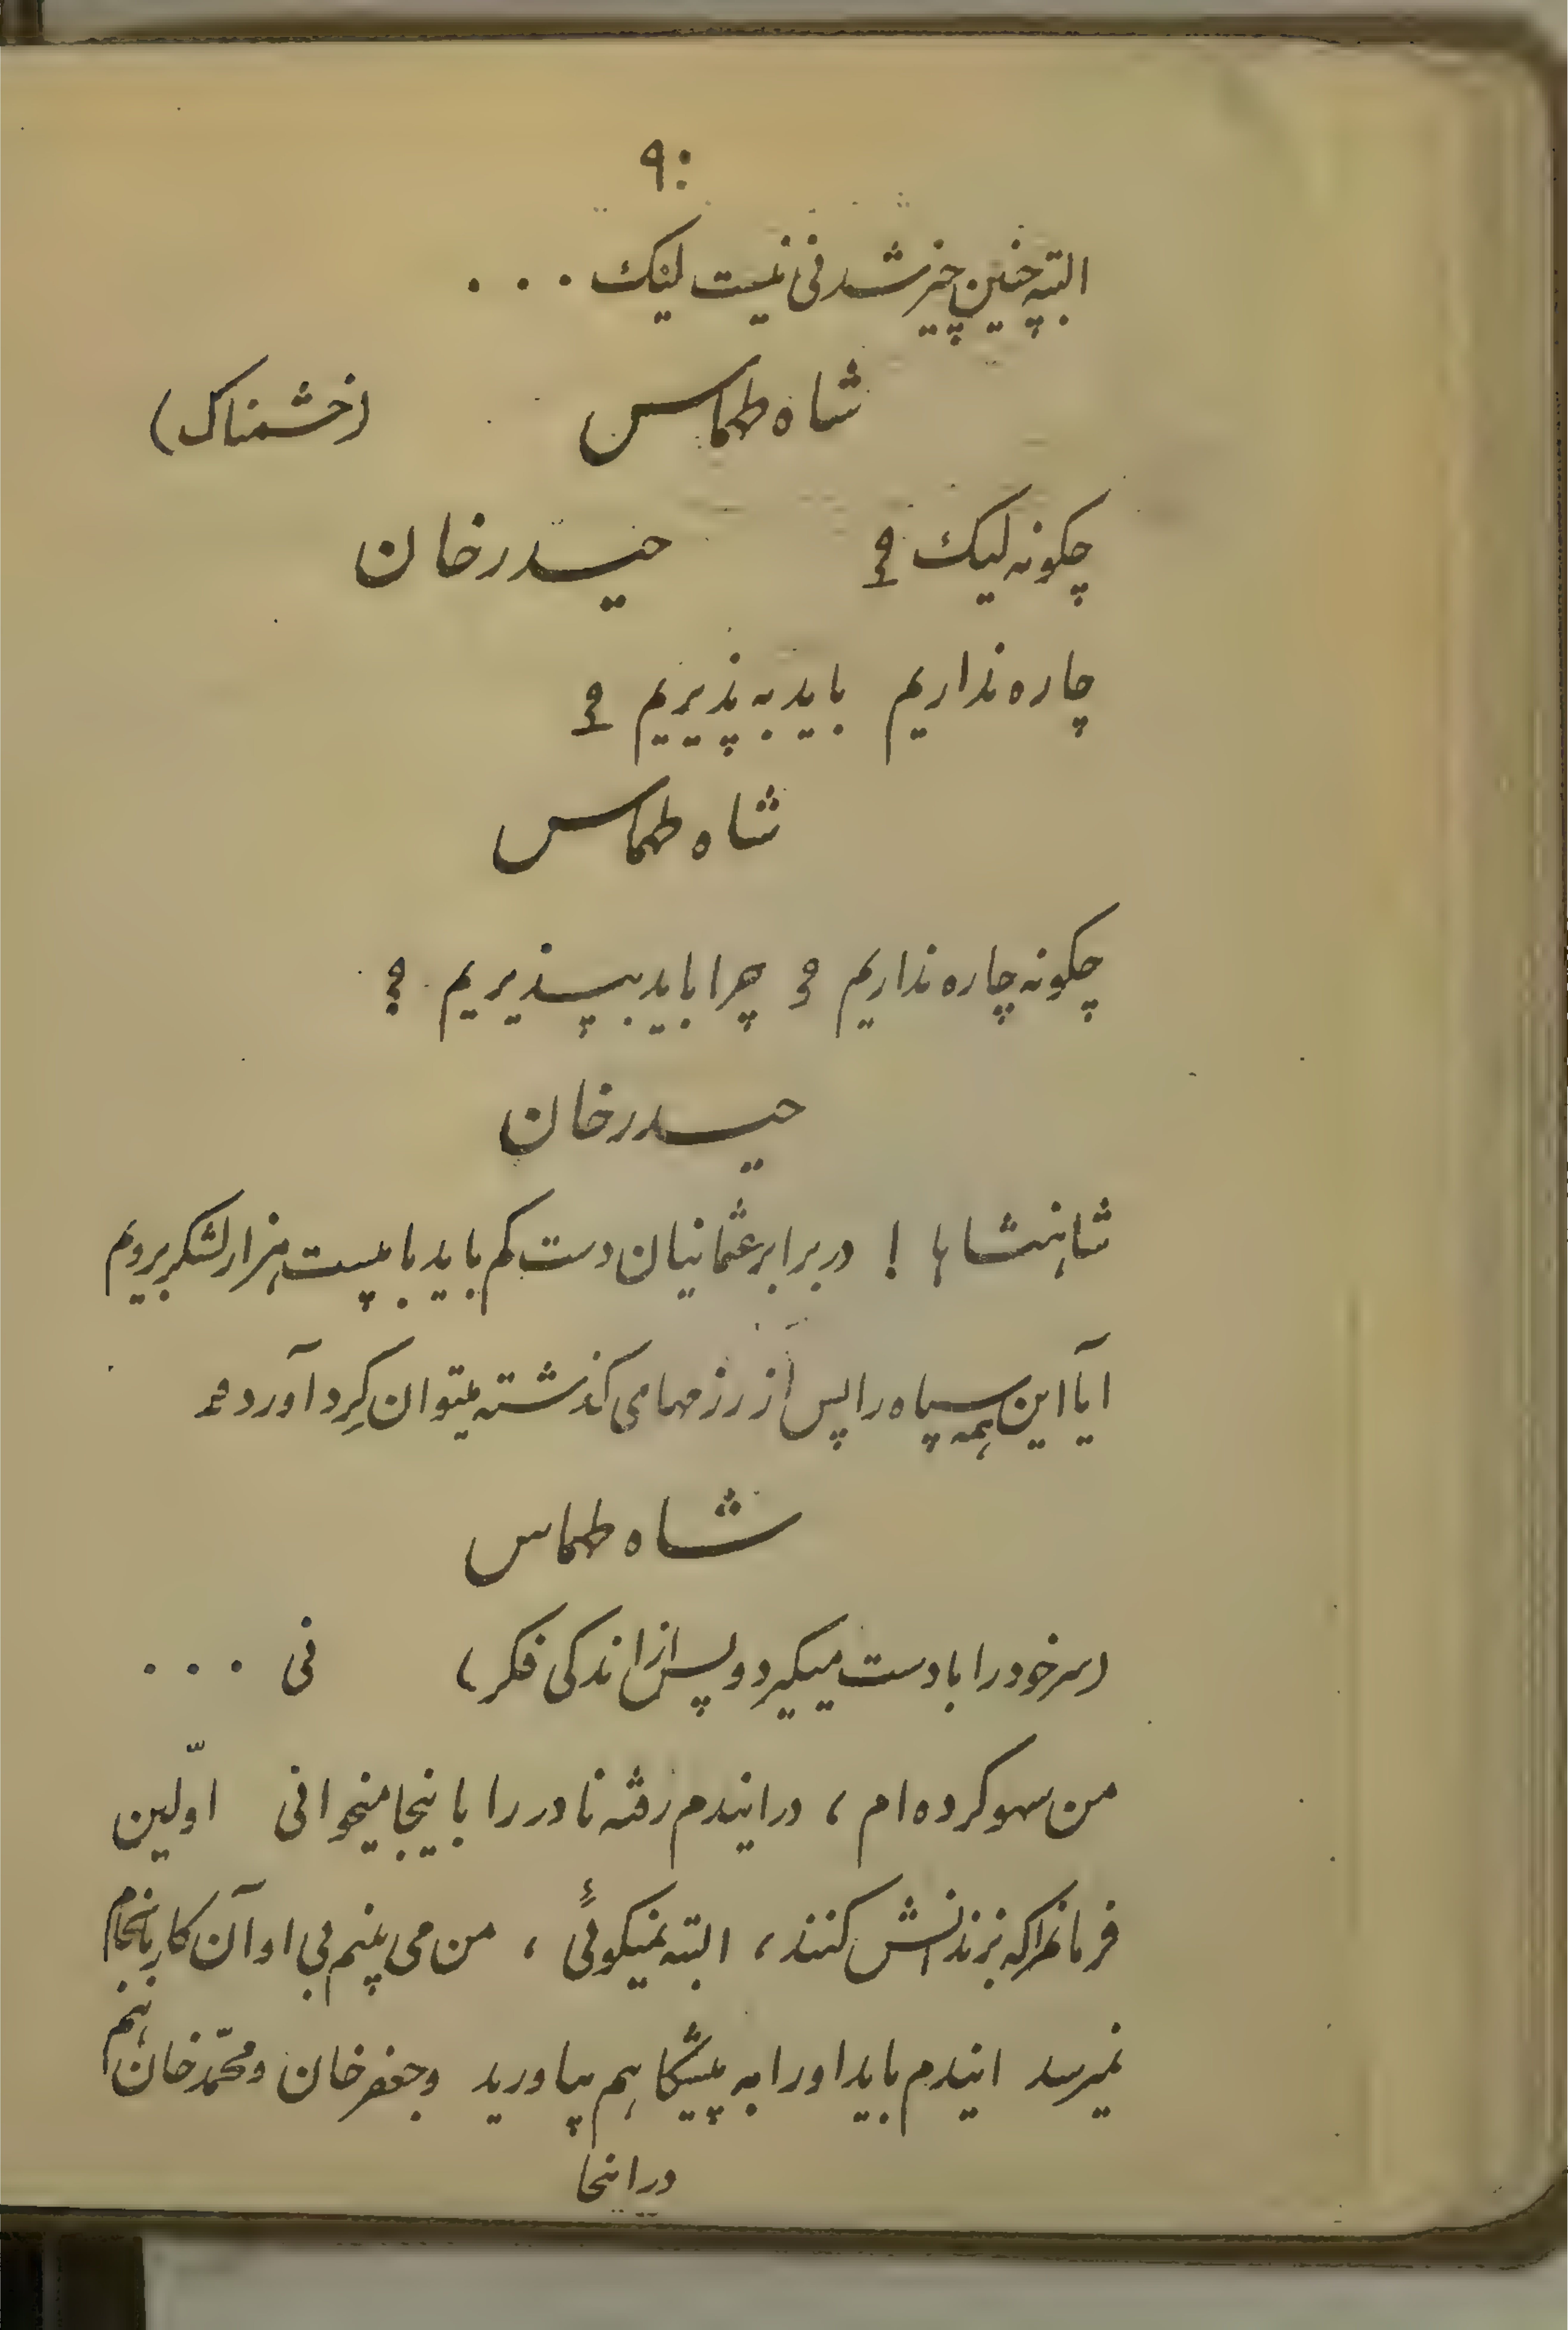 :۹
البته چنین چیز شدنی نیست لیک . . .
شاه طهماس (خشمناک)
چگونه لیک ؟ حیدر خان
چاره نداریم باید به پذیریم ؟
شاه طهماس
چگونه چاره نداریم ؟ چرا باید بپذیریم ؟
حیدر خان
شاهنشاها ! در برابر عثمانیان دست کم باید با بیست هزار لشکر برویم
ایا این همه سپاه را پس از رزمهای گذشته میتوان گِرد آورد ؟
شاه طهماس
(سر خود را با دست میگیرد و پس از اندکی فکر) نی . . .
من سهو کرده‌ام ، در ایندم رفته نادر را باینجا میخوانی اوّلین
فرمانرا که بزندانش کنند ، البته نمیگوئی ، من می بینم بی او آن کار بانجام
نمیرسد ایندم باید اورا به پیشگاهم بیاورید وجعفر خان و محمّد خان هم
در اینجا